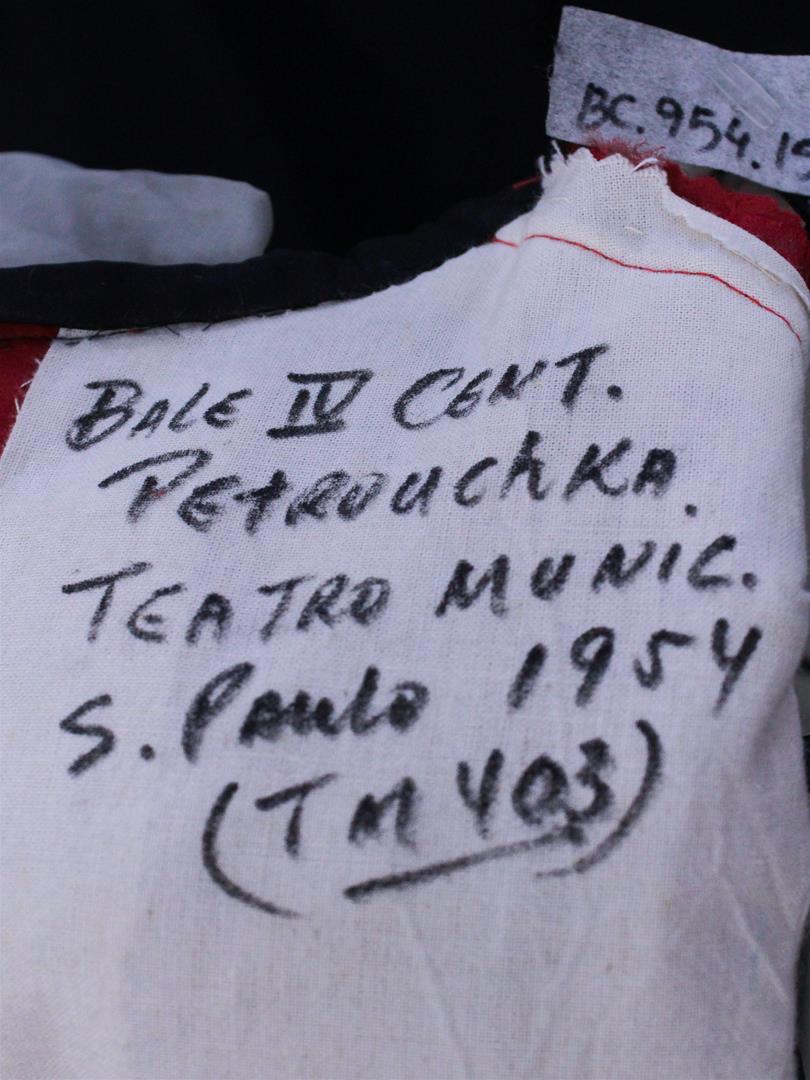 BC.954.15
BALE IV CENT.
PETROUCHKA.
TEATRO MUNIC.
S. PAULO 1954
(TM 403)